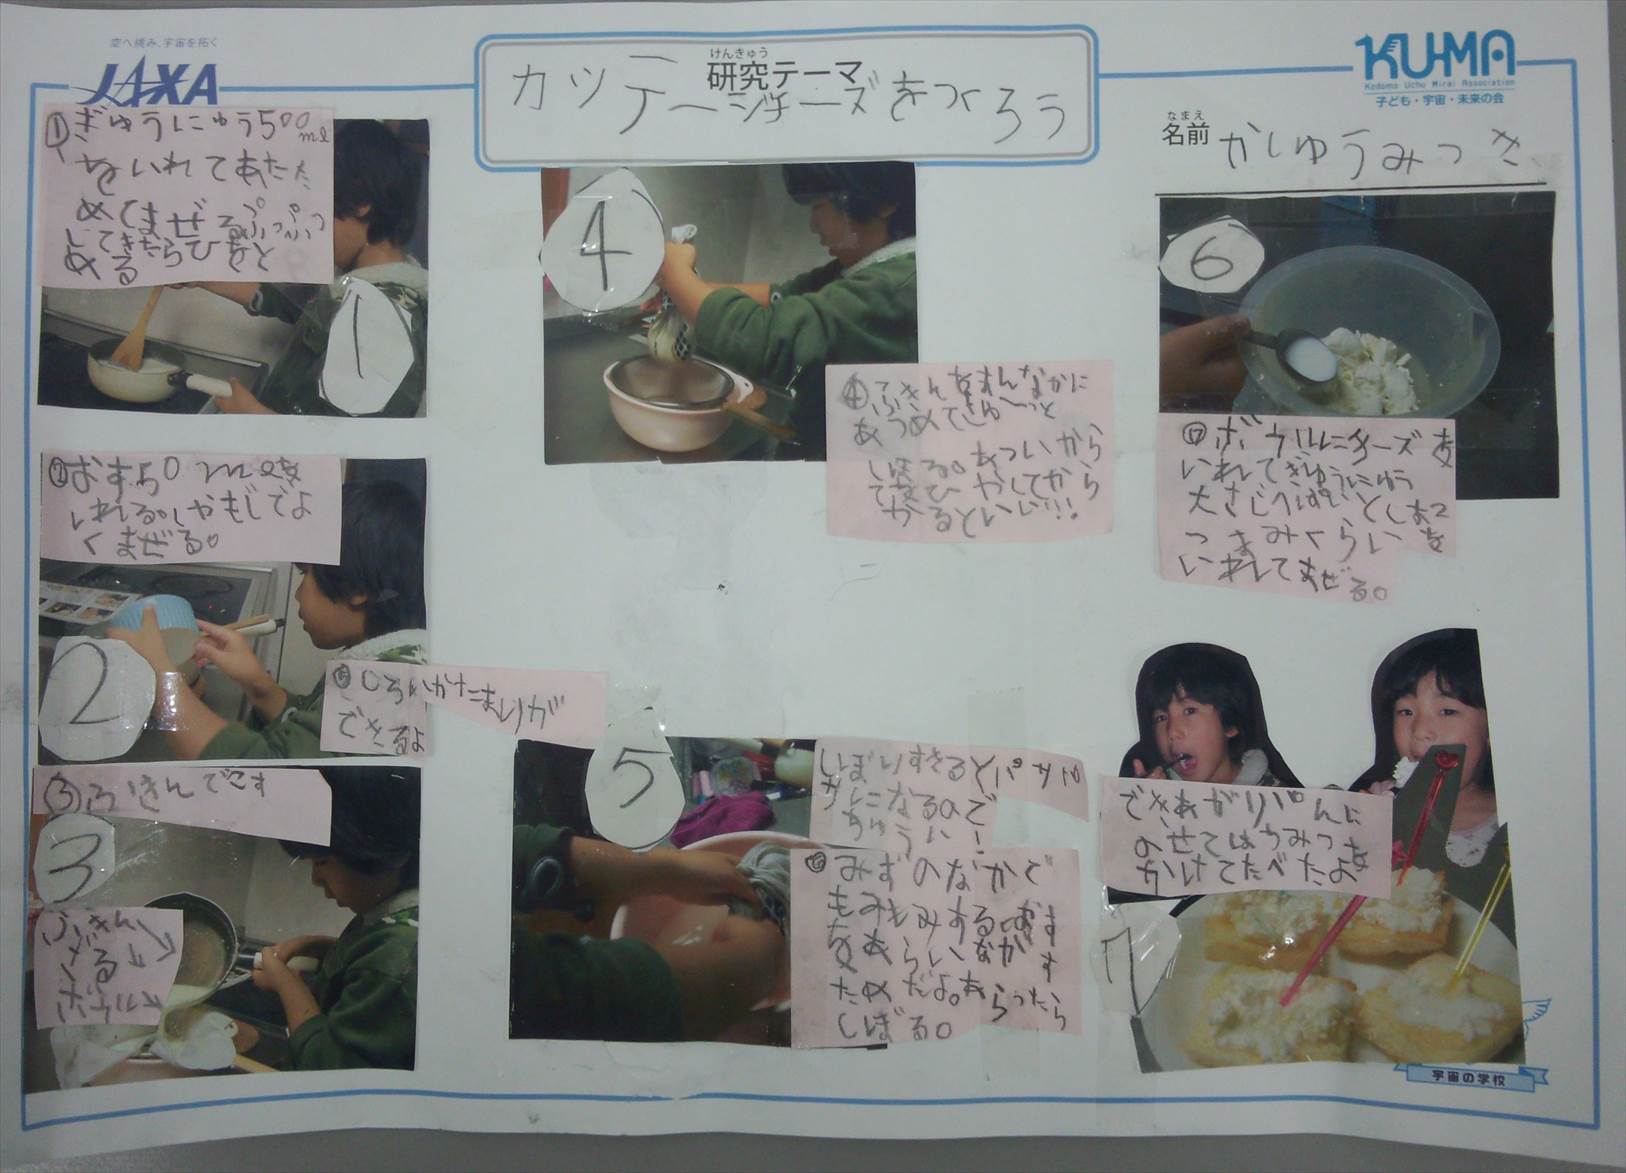 空へ挑み、宇宙を拓く
JAXA
けんきゅう
研究テーマ
カッテージチーズをつくろう
KU-MA
Kodomo Uchu Mirai Association
子ども・宇宙・未来の会
なまえ
名前 かしゅうみつき
①ぎゅうにゅう500ml
をいれてあたた
めてまぜるぷっぷつ
してきたらひをと
める
1
②おす50mlを
いれる。しゃもじでよ
くまぜる。
2
しろいかたまりが
できるよ
③ふきんでこす
3
ふきん
ざる
ボウル
4
④ふきんをまんなかに
あつめてぎゅ〜っと
しぼる。あついから
てをひやしてから
やるといい!!!
5
しぼりすぎるとパサパ
サになるので
ちゅうい!
みずのなかで
もみもみする。おす
をあらいながす
ためだよ。あらったら
しぼる。
6
ボウルにチーズを
いれてぎゅうにゅう
大さじ1ぱいとしお2
つまみくらいを
いれてまぜる。
できあがりパンに
のせてはちみつを
かけてたべたよ
7
宇宙の学校